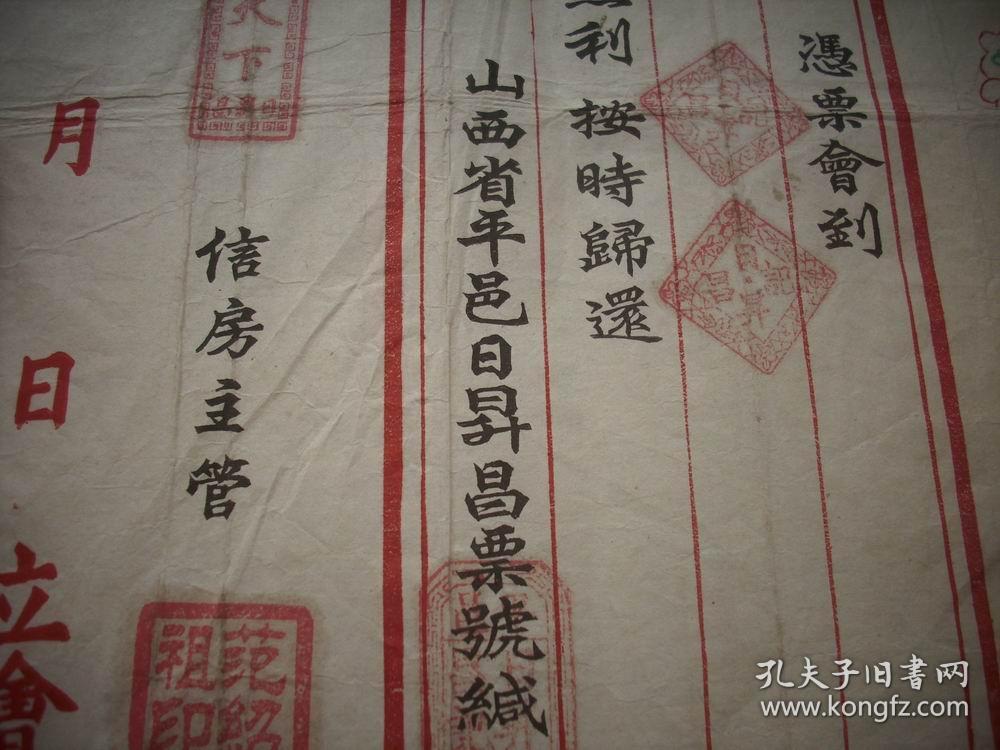 憑票會到
利 按時歸還
山西省平邑日昇昌票號緘
天下
信房主管
范
祖印
月 日 立會
孔夫子旧書网
www.kongfz.com